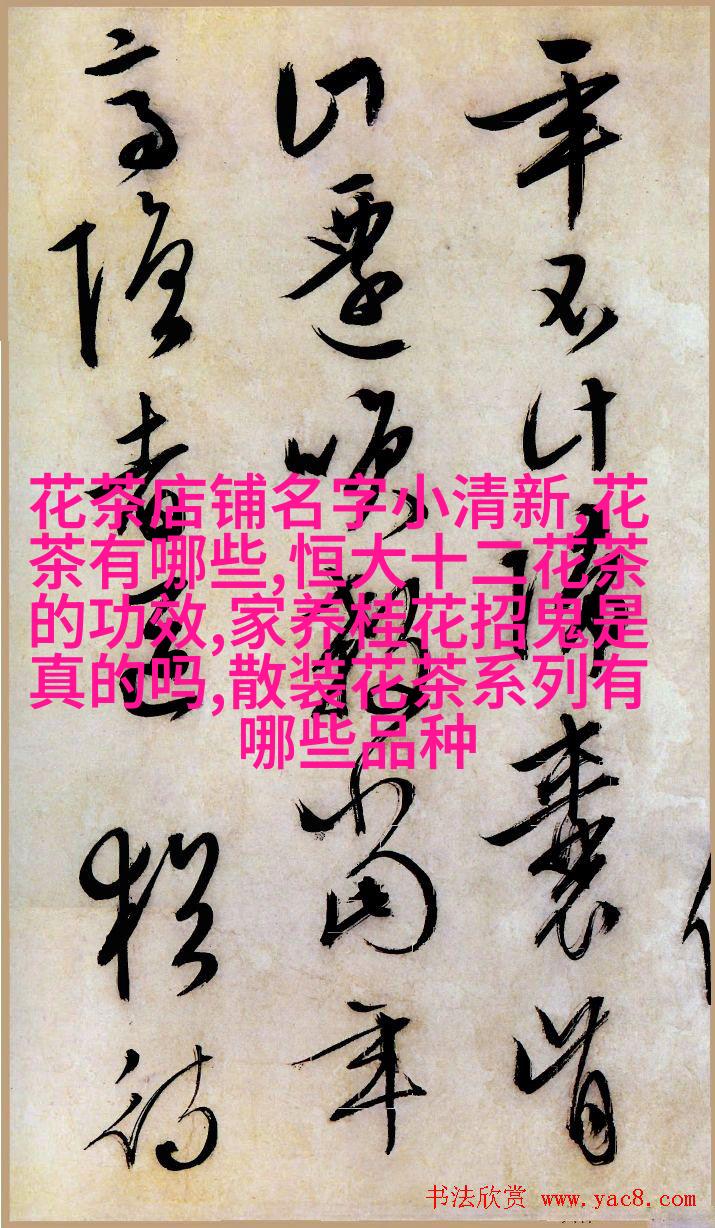 年不計囊肯
遷想當年
高隱者
花茶店铺名字小清新,花
茶有哪些,恒大十二花茶
的功效,家养桂花招鬼是
真的吗,散装花茶系列有
哪些品种
书法欣赏 www.yac8.com